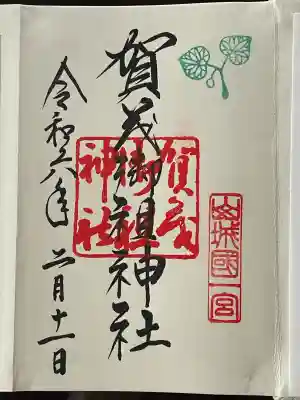 山城國一宮
賀茂御祖神社
賀茂御祖神社
令和六年二月十一日